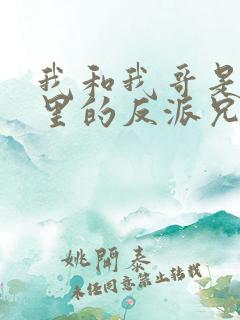 我和我哥是
里的反派兄
姚闻泰
未经同意禁止转载